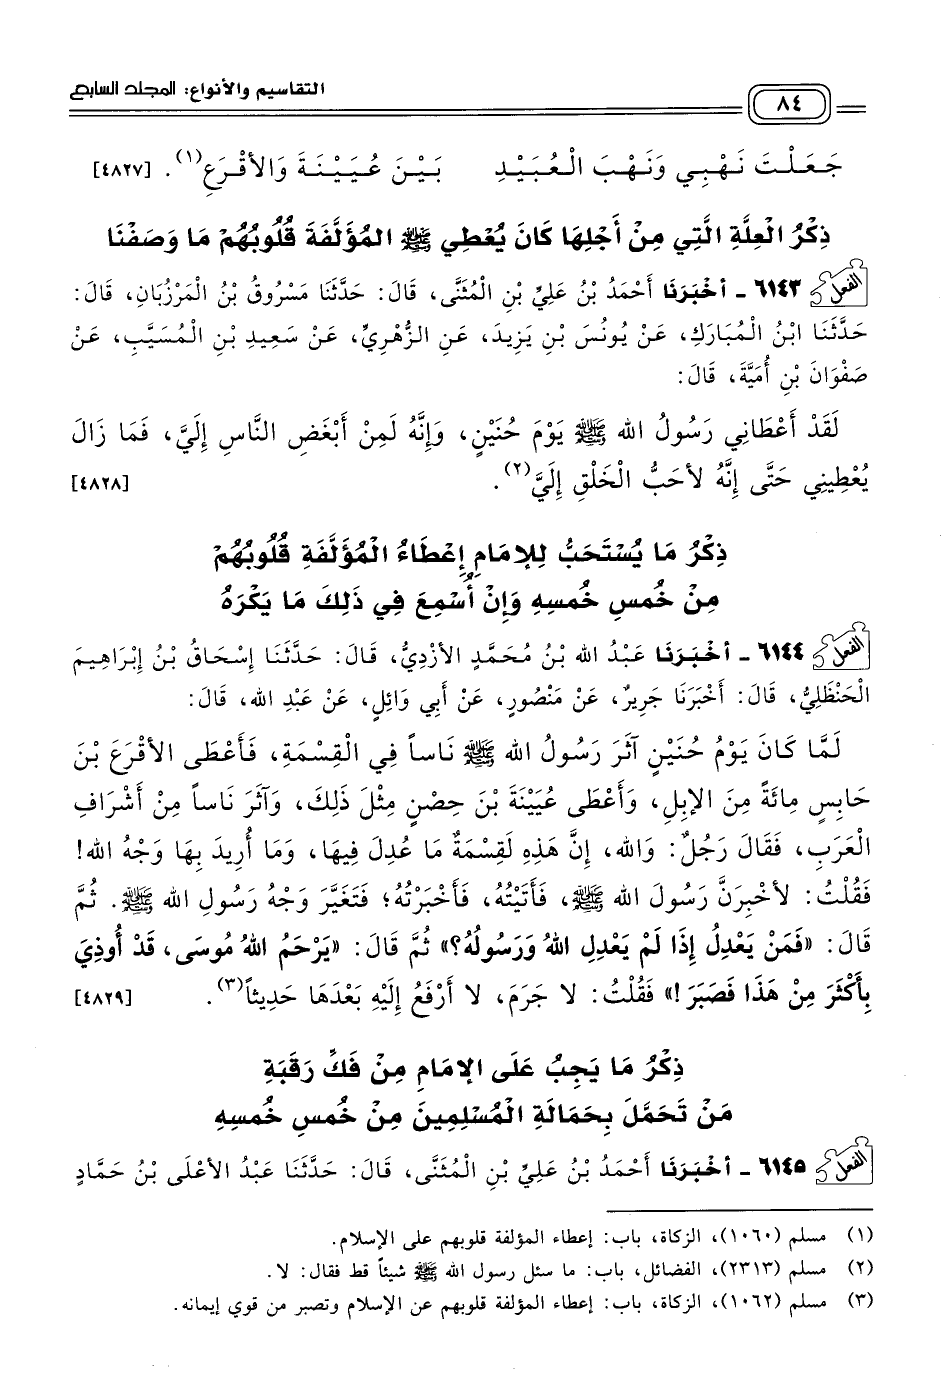 ٨٤ التقاسيم والأنواع: المجلد السابع
جَعَلْتَ نَهْبِي وَنَهْبَ الْعُبَيْدِ بَيْنَ عُيَيْنَةَ وَالأَقْرَعِ(١). [٤٨٢٧]
ذِكْرُ الْعِلَّةِ الَّتِي مِنْ أَجْلِهَا كَانَ يُعْطِي ﷺ الْمُؤَلَّفَةَ قُلُوبُهُمْ مَا وَصَفْنَا
الفعل ٦١٤٣ - أَخْبَرَنَا أَحْمَدُ بْنُ عَلِيِّ بْنِ الْمُثَنَّى، قَالَ: حَدَّثَنَا مَسْرُوقُ بْنُ الْمَرْزُبَانِ، قَالَ:
حَدَّثَنَا ابْنُ الْمُبَارَكِ، عَنْ يُونُسَ بْنِ يَزِيدَ، عَنِ الزُّهْرِيِّ، عَنْ سَعِيدِ بْنِ الْمُسَيَّبِ، عَنْ
صَفْوَانَ بْنِ أُمَيَّةَ، قَالَ:
لَقَدْ أَعْطَانِي رَسُولُ الله ﷺ يَوْمَ حُنَيْنٍ، وَإِنَّهُ لَمِنْ أَبْغَضِ النَّاسِ إِلَيَّ، فَمَا زَالَ
يُعْطِينِي حَتَّى إِنَّهُ لأَحَبُّ الْخَلْقِ إِلَيَّ(٢). [٤٨٢٨]
ذِكْرُ مَا يُسْتَحَبُّ لِلإِمَامِ إِعْطَاءُ الْمُؤَلَّفَةِ قُلُوبُهُمْ
مِنْ خُمسِ خُمسِهِ وَإِنْ أُسْمِعَ فِي ذَلِكَ مَا يَكْرَهُ
الفعل ٦١٤٤ - أَخْبَرَنَا عَبْدُ الله بْنُ مُحَمَّدٍ الأَزْدِيُّ، قَالَ: حَدَّثَنَا إِسْحَاقُ بْنُ إِبْرَاهِيمَ
الْحَنْظَلِيُّ، قَالَ: أَخْبَرَنَا جَرِيرٌ، عَنْ مَنْصُورٍ، عَنْ أَبِي وَائِلٍ، عَنْ عَبْدِ الله، قَالَ:
لَمَّا كَانَ يَوْمُ حُنَيْنٍ آثَرَ رَسُولُ الله ﷺ نَاساً فِي الْقِسْمَةِ، فَأَعْطَى الأَقْرَعَ بْنَ
حَابِسٍ مِائَةً مِنَ الإِبِلِ، وَأَعْطَى عُيَيْنَةَ بْنَ حِصْنٍ مِثْلَ ذَلِكَ، وَآثَرَ نَاساً مِنْ أَشْرَافِ
الْعَرَبِ، فَقَالَ رَجُلٌ: وَالله، إِنَّ هَذِهِ لَقِسْمَةٌ مَا عُدِلَ فِيهَا، وَمَا أُرِيدَ بِهَا وَجْهُ الله!
فَقُلْتُ: لأُخْبِرَنَّ رَسُولَ الله ﷺ، فَأَتَيْتُهُ، فَأَخْبَرْتُهُ؛ فَتَغَيَّرَ وَجْهُ رَسُولِ الله ﷺ. ثُمَّ
قَالَ: «فَمَنْ يَعْدِلُ إِذَا لَمْ يَعْدِلِ اللهُ وَرَسُولُهُ؟» ثُمَّ قَالَ: «يَرْحَمُ اللهُ مُوسَى، قَدْ أُوذِيَ
بِأَكْثَرَ مِنْ هَذَا فَصَبَرَ!» فَقُلْتُ: لا جَرَمَ، لا أَرْفَعُ إِلَيْهِ بَعْدَهَا حَدِيثاً(٣). [٤٨٢٩]
ذِكْرُ مَا يَجِبُ عَلَى الإِمَامِ مِنْ فَكِّ رَقَبَةِ
مَنْ تَحَمَّلَ بِحَمَالَةِ الْمُسْلِمِينَ مِنْ خُمسِ خُمسِهِ
الفعل ٦١٤٥ - أَخْبَرَنَا أَحْمَدُ بْنُ عَلِيِّ بْنِ الْمُثَنَّى، قَالَ: حَدَّثَنَا عَبْدُ الأَعْلَى بْنُ حَمَّادٍ
(١) مسلم (١٠٦٠)، الزكاة، باب: إعطاء المؤلفة قلوبهم على الإسلام.
(٢) مسلم (٢٣١٣)، الفضائل، باب: ما سئل رسول الله ﷺ شيئاً قط فقال: لا.
(٣) مسلم (١٠٦٢)، الزكاة، باب: إعطاء المؤلفة قلوبهم عن الإسلام وتصبر من قوي إيمانه.